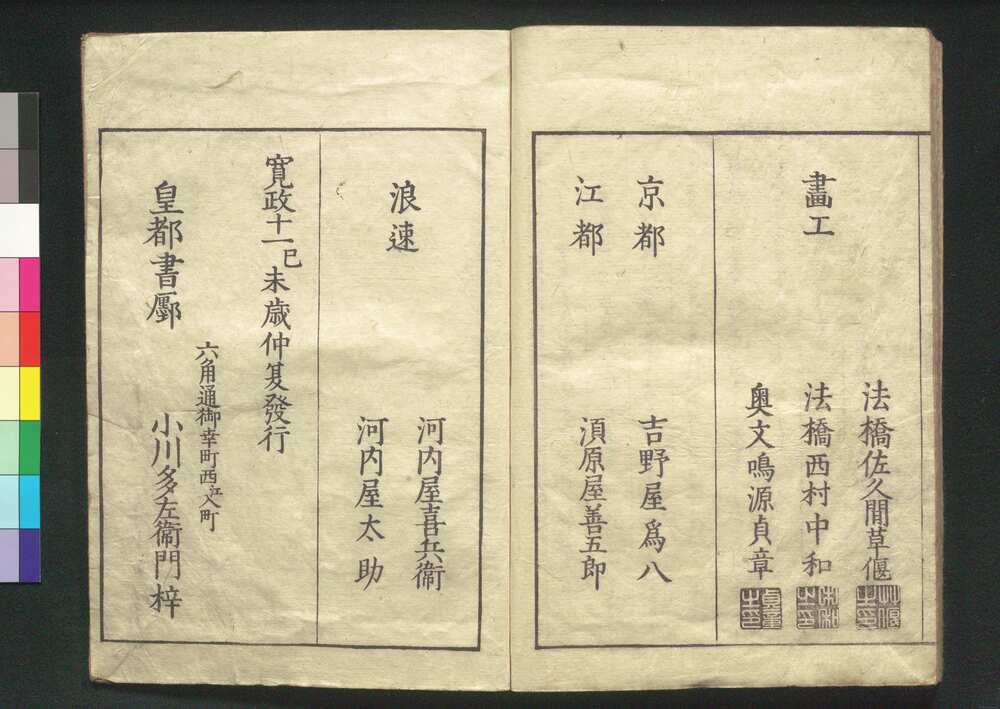 畫工
法橋佐久間草偃
草偃之印
法橋西村中和
中和之印
奥文鳴源貞章
貞章之印
京都
吉野屋為八
江都
須原屋善五郎
浪速
河内屋喜兵衛
河内屋太助
寛政十一己未歳仲夏發行
六角通御幸町西江入町
皇都書鄽
小川多左衛門梓